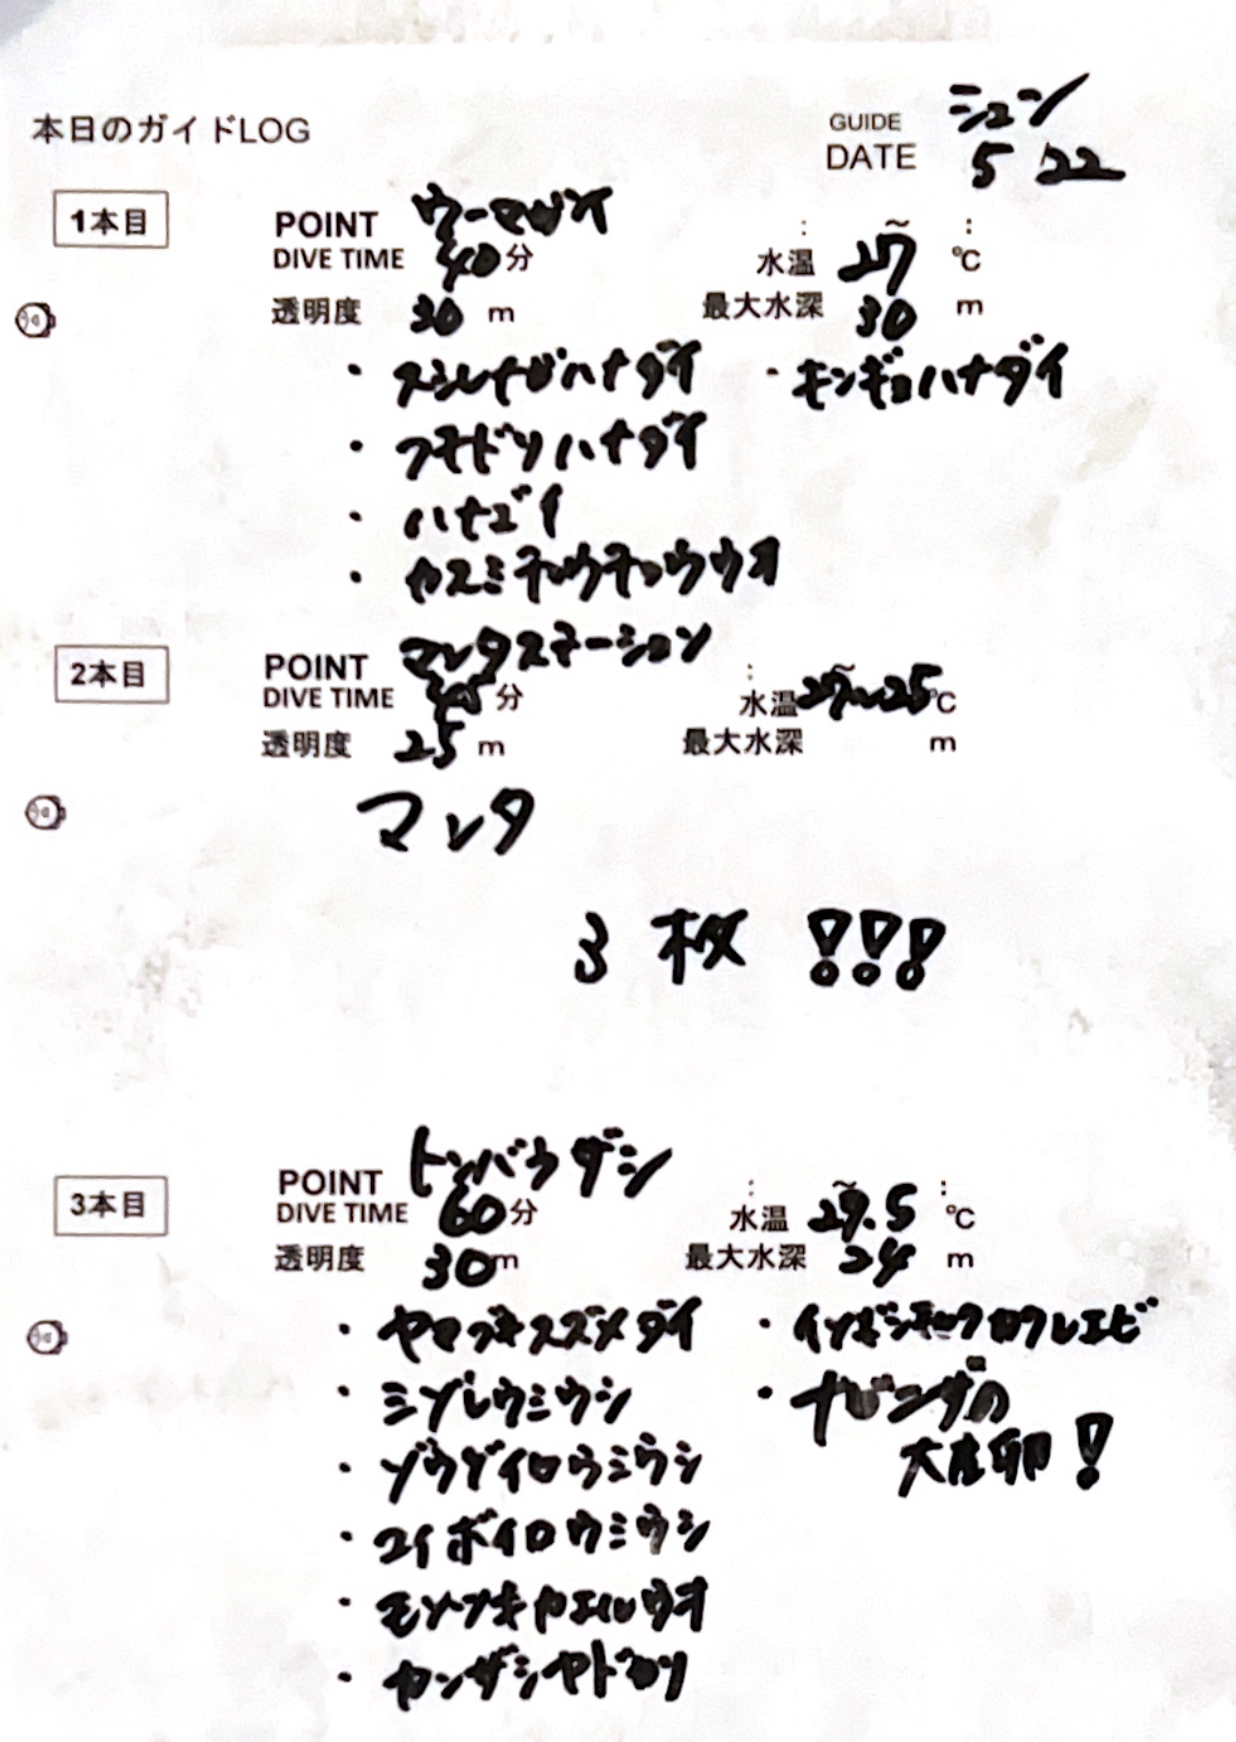 本日のガイドLOG
GUIDE シュン
DATE 5 22
1本目
POINT ウーマガイ : ~ :
DIVE TIME 40分 水温 27 ℃
透明度 30 m 最大水深 30 m
・スミレナガハナダイ ・キンギョハナダイ
・フチドリハナダイ
・ハナゴイ
・カスミチョウチョウウオ
2本目
POINT マンタステーション : ~
DIVE TIME 45分 水温27~25℃
透明度 25 m 最大水深 m
マンタ
3 枚 !!!
3本目
POINT トンバラザシ : ~ :
DIVE TIME 60分 水温 29.5 ℃
透明度 30m 最大水深 24 m
・ヤマブキスズメダイ ・イソギンチャクカクレエビ
・ミゾレウミウシ ・ナビングの
・ゾウゲイロウミウシ 大産卵!
・コイボイロウミウシ
・モンツキカエルウオ
・カンザシヤドカリ